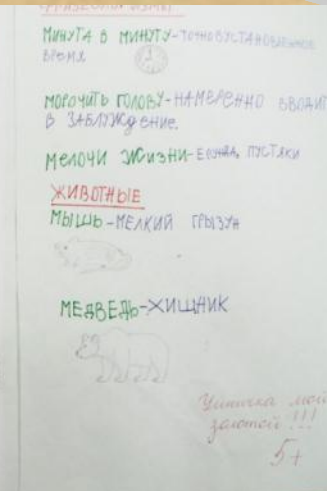 ФРАЗЕОЛОГИЗМЫ
МИНУТА В МИНУТУ-ТОЧНО УСТАНОВЛЕННОЕ
ВРЕМЯ
МОРОЧИТЬ ГОЛОВУ-НАМЕРЕННО ВВОДИТ
В ЗАБЛУЖДЕНИЕ.
МЕЛОЧИ ЖИЗНИ-ЕРУНДА, ПУСТЯКИ
ЖИВОТНЫЕ
МЫШЬ-МЕЛКИЙ ГРЫЗУН
МЕДВЕДЬ-ХИЩНИК
Умничка мой
золотой!!!
5+